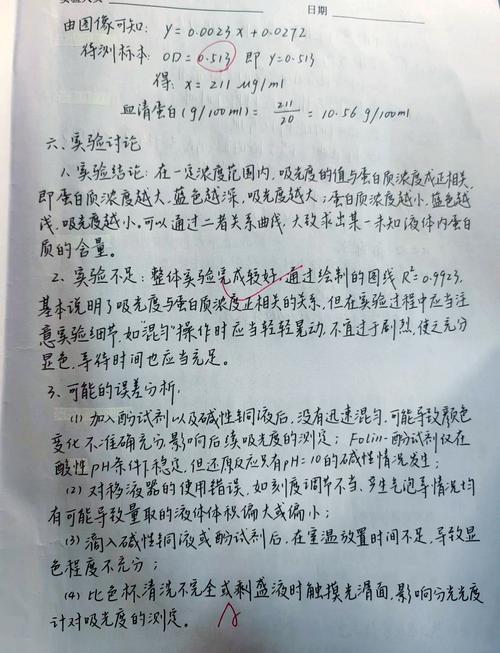 日期
由图像可知: y=0.0023x+0.0272
待测标本: OD=0.513 即 y=0.513
得: x=211 μg/ml
血清蛋白(g/100ml)= 211/20 = 10.56 g/100ml
六、实验讨论
1、实验结论: 在一定浓度范围内, 吸光度的值与蛋白质浓度成正相关,
即蛋白质浓度越大, 蓝色越深, 吸光度越大; 蛋白质浓度越小, 蓝色越
浅, 吸光度越小。可以通过二者关系曲线, 大致求出某一未知液体内蛋白
质的含量。
2、实验不足: 整体实验完成较好, 通过绘制的图线 R²=0.9923,
基本说明了吸光度与蛋白质浓度正相关的关系, 但在实验过程中应当注
意实验细节, 如"混匀"操作时应当轻轻晃动, 不宜过于剧烈, 使之充分
显色, 等待时间也应当充足。
3、可能的误差分析.
(1) 加入酚试剂以及碱性铜液后, 没有迅速混匀, 可能导致颜色
变化不准确充分, 影响后续吸光度的测定; Folin-酚试剂仅在
酸性pH条件下稳定, 但还原反应只有pH=10的碱性情况发生;
(2) 对移液器的使用错误, 如刻度调节不当、产生气泡等情况均
有可能导致量取的液体体积偏大或偏小;
(3) 滴入碱性铜液或酚试剂后, 在室温放置时间不足, 导致显
色程度不充分;
(4) 比色杯清洗不完全或剩盛液时触摸光滑面, 影响分光光度
计对吸光度的测定。
A